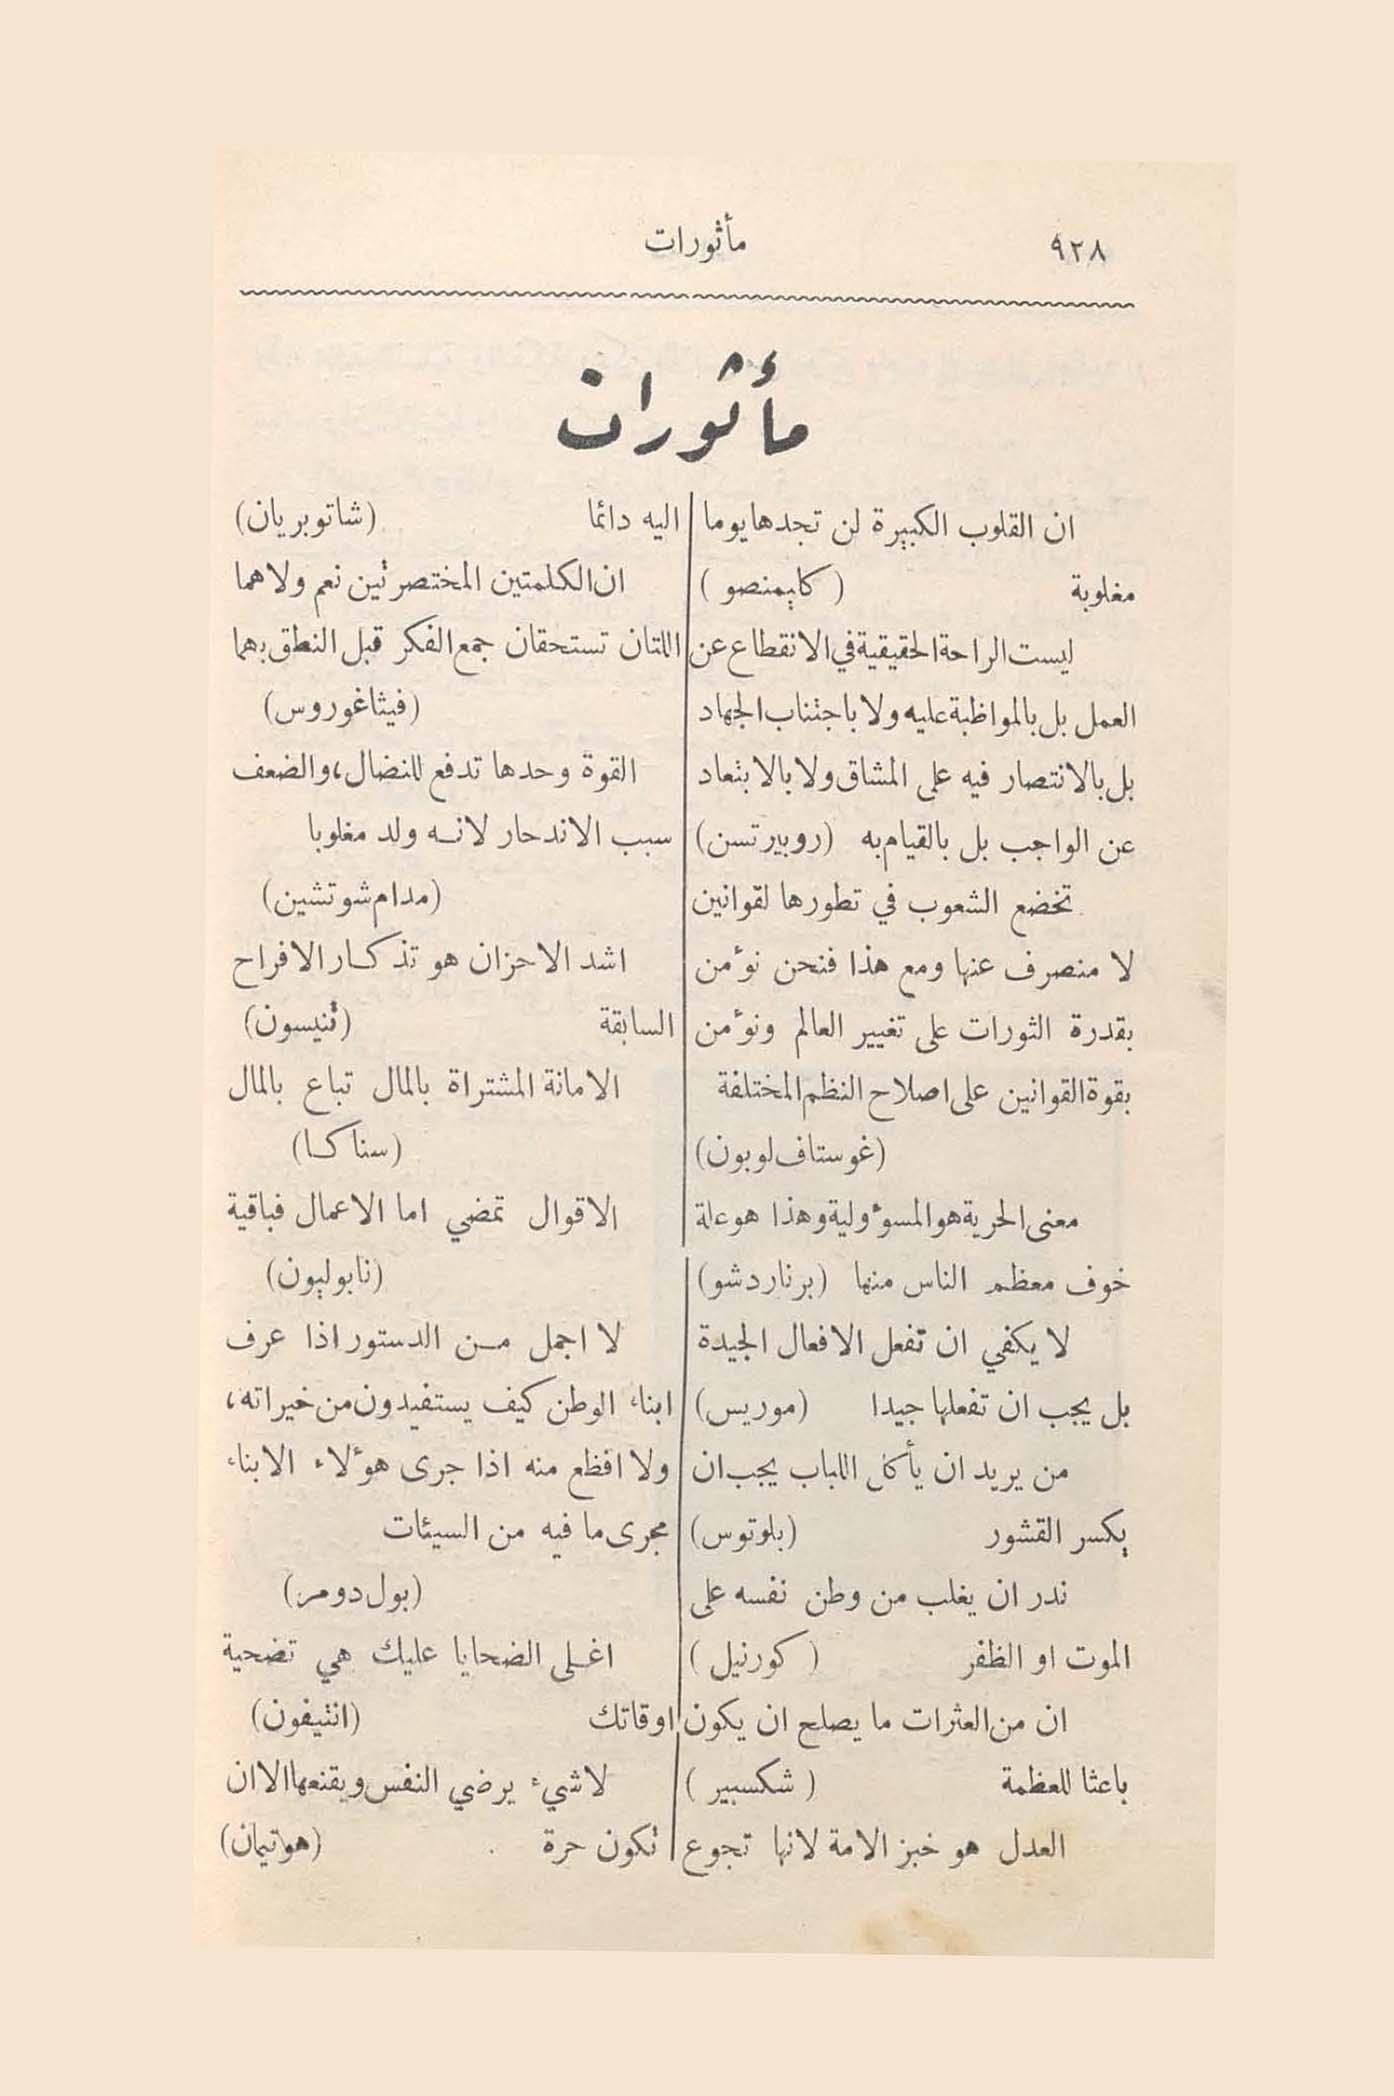 ٩٢٨
مأثورات
مأثورات
ان القلوب الكبيرة لن تجدها يوما
مغلوبة (كليمنصو)
ليست الراحة الحقيقية في الانقطاع عن
العمل بل بالمواظبة عليه ولا باجتناب الجهاد
بل بالانتصار فيه على المشاق ولا بالابتعاد
عن الواجب بل بالقيام به (روبيرتسن)
تخضع الشعوب في تطورها لقوانين
لا منصرف عنها ومع هذا فنحن نؤمن
بقدرة الثورات على تغيير العالم ونؤمن
بقوة القوانين على اصلاح النظم المختلفة
(غوستاف لوبون)
معنى الحرية هو المسوءولية وهذا هو علة
خوف معظم الناس منها (برناردشو)
لا يكفي ان تفعل الافعال الجيدة
بل يجب ان تفعلها جيدا (موريس)
من يريد ان يأكل اللباب يجب ان
يكسر القشور (بلوتوس)
ندر ان يغلب من وطن نفسه على
الموت او الظفر (كورنيل)
ان من العثرات ما يصلح ان يكون
باعثا للعظمة (شكسبير)
العدل هو خبز الامة لانها تجوع
اليه دائما (شاتوبريان)
ان الكلمتين المختصرتين نعم ولا هما
اللتان تستحقان جمع الفكر قبل النطق بهما
(فيثاغوروس)
القوة وحدها تدفع للنضال، والضعف
سبب الاندحار لانه ولد مغلوبا
(مدام شوتشين)
اشد الاحزان هو تذكار الافراح
السابقة (تنيسون)
الامانة المشتراة بالمال تباع بالمال
(سناكا)
الاقوال تمضي اما الاعمال فباقية
(نابوليون)
لا اجمل من الدستور اذا عرف
ابناء الوطن كيف يستفيدون من خيراته،
ولا افظع منه اذا جرى هؤلاء الابناء
مجرى ما فيه من السيئات
(بول دومر)
اغلى الضحايا عليك هي تضحية
اوقاتك (انتيفون)
لا شيء يرضي النفس ويقنعها الا ان
تكون حرة (هواتيمان)